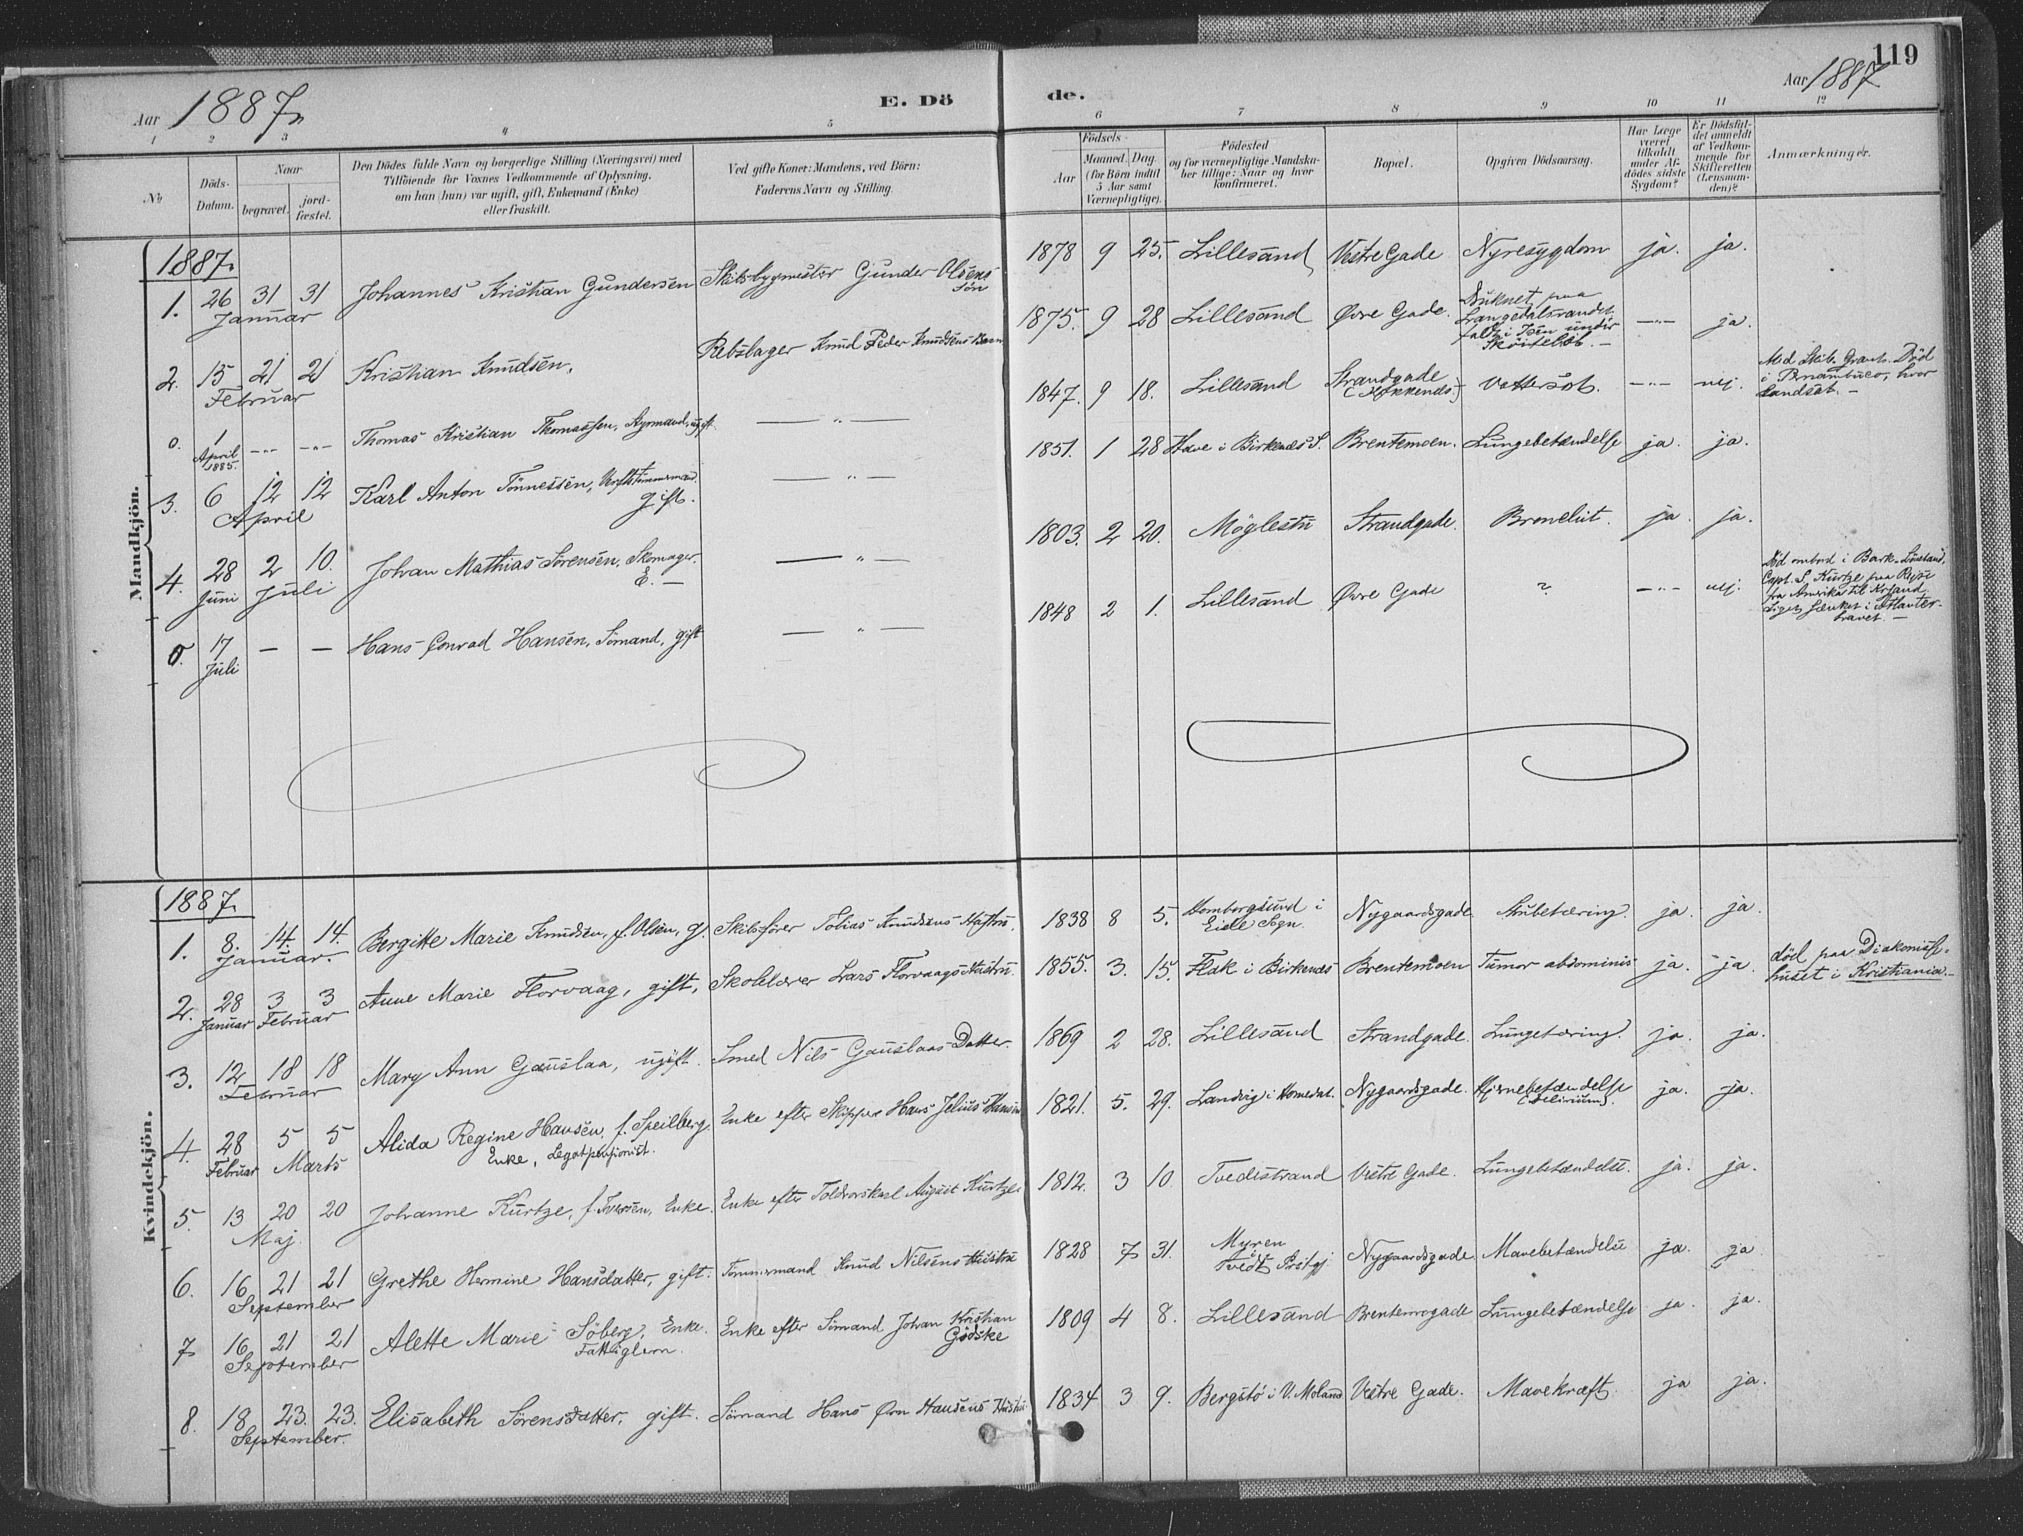 119
Aar 1887.
E. Dö
de.
Aar 1887
1 2 3 4 5 6 7 8 9 10 11 12
No
Döds-Datum.
Naar
begravet.
jord-fæstet.
Den Dödes fulde Navn og borgerlige Stilling (Næringsvei) med
Tilföiende for Voxnes Vedkommende af Oplysning,
om han (hun) var ugift, gift, Enkemand (Enke)
eller fraskilt.
Ved gifte Koner: Mandens, ved Börn:
Faderens Navn og Stilling.
Födsels-
Aar
Maaned. Dag.
(for Börn indtil
5 Aar samt
Værnepligtige).
Födested
og for værnepligtige Mandska-
ber tillige: Naar og hvor
konfirmeret.
Bopæl.
Opgiven Dödsaarsag.
Har Læge
været
tilkaldt
under Af-
dödes sidste
Sygdom?
Er Dödsfal-
det anmeldt
af Vedkom-
mende for
Skifteretten
(Lensman-
den)?
Anmærkninger.
Mandkjön.
1887.
1. 26 31 31 Januar Johannes Kristian Gundersen Skibsbygmester Gunder Olsens Sön 1878 9 25. Lillesand Vestre Gade Nyresygdom ja. ja.
2. 15 21 21 Februar Kristian Knudsen. Rebslager Knud Peder Knudsens Barn 1875. 9 28 Lillesand Øvre Gade. Druknet paa Langedalsvandet faldt i Isen under Skøiteløb. — —"— ja.
0. 1 April 1885. —"— —"— Thomas Kristian Thomassen, Styrmand, ugift. — " — 1847. 9 18. Lillesand Strandgade Vattersot. —"— nej. Med Skib Grant. Död i Pernambuco, hvor landsat. —
3. 6 12 12 April Karl Anton Tönnessen, Verftstömmermand. gift. — " — 1851. 1 28 Have i Birkenæs S. Brentemoen. Lungebetændelse ja. ja.
4. 28 Juni 2 10. Juli Johan Mathias Sörensen, Skomager. E. — — " — 1803. 2 20. Möglestu Strandgade. ja. ja.
0. 17 Juli — — Hans Conrad Hansen, Sömand, gift — " — 1848 2 1. Lillesand Øvre Gade ? —"— nej. Död ombord i Bark Capt. S. Kurtze paa Rejse fra Amerika til Krsand Liget sænket i Atlanter-havet. —
Kvindekjön.
1887.
1. 8. 14. 14. Januar. Bergitte Marie Knudsen, f. Olsen, g. Skibsförer Tobias Knudsens Hustru. 1838 8 5. Homborgsund i Eide Sogn. Nygaardsgade ja. ja.
2. 28 Januar 3 3 Februar Anne Marie Florvaag, gift, Skolelærer Lars Florvaags Hustru. 1855. 3. 15. Flak i Birkenæs Brentemoen Tumor abdominis ja. ja. död paa Diakonisse-huset i Kristiania.
3. 12 18 18 Februar Mary Ann Gauslaa, ugift. Smed Nils Gauslaas Datter. 1869 2 28. Lillesand Strandgade. Lungetæring. ja. ja.
4. 28 Februar 5 5 Marts Alida Regine Hansen, f. Speilberg. Enke, Legatpensionist. Enke efter Skipper Hans Jelius Hansen 1821. 5. 29. Landvig i Homedal. Nygaardsgade. Hjernebetændelse (Delirium). ja. ja.
5. 13 20 20 Maj. Johanne Kurtze, f. Iversen, Enke. Enke efter Toldrorskarl August Kurtze 1812. 3 10. Tvedestrand Vestre Gade. Lungebetændelse. ja. ja.
6. 16 21 21 September Grethe Hermine Hansdatter, gift. Tömmermand Knud Nilsens Hustru 1828 7 31. Myren i Tvedt Prstgj Nygaardsgade. Mavebetændelse ja. ja
7 16 21 21 September Alette Marie Söberg, Enke. Fattiglem. Enke efter Sömand Johan Kristian Gödske 1809 4 8. Lillesand Brentemogade Lungebetændelse ja ja.
8. 18 23. 23. September. Elisabeth Sörensdatter, gift. Sömand Hans Ørn Hansens Hustru 1834 3 9. Bergstö i V. Moland Vestre Gade. Mavekræft. ja ja.